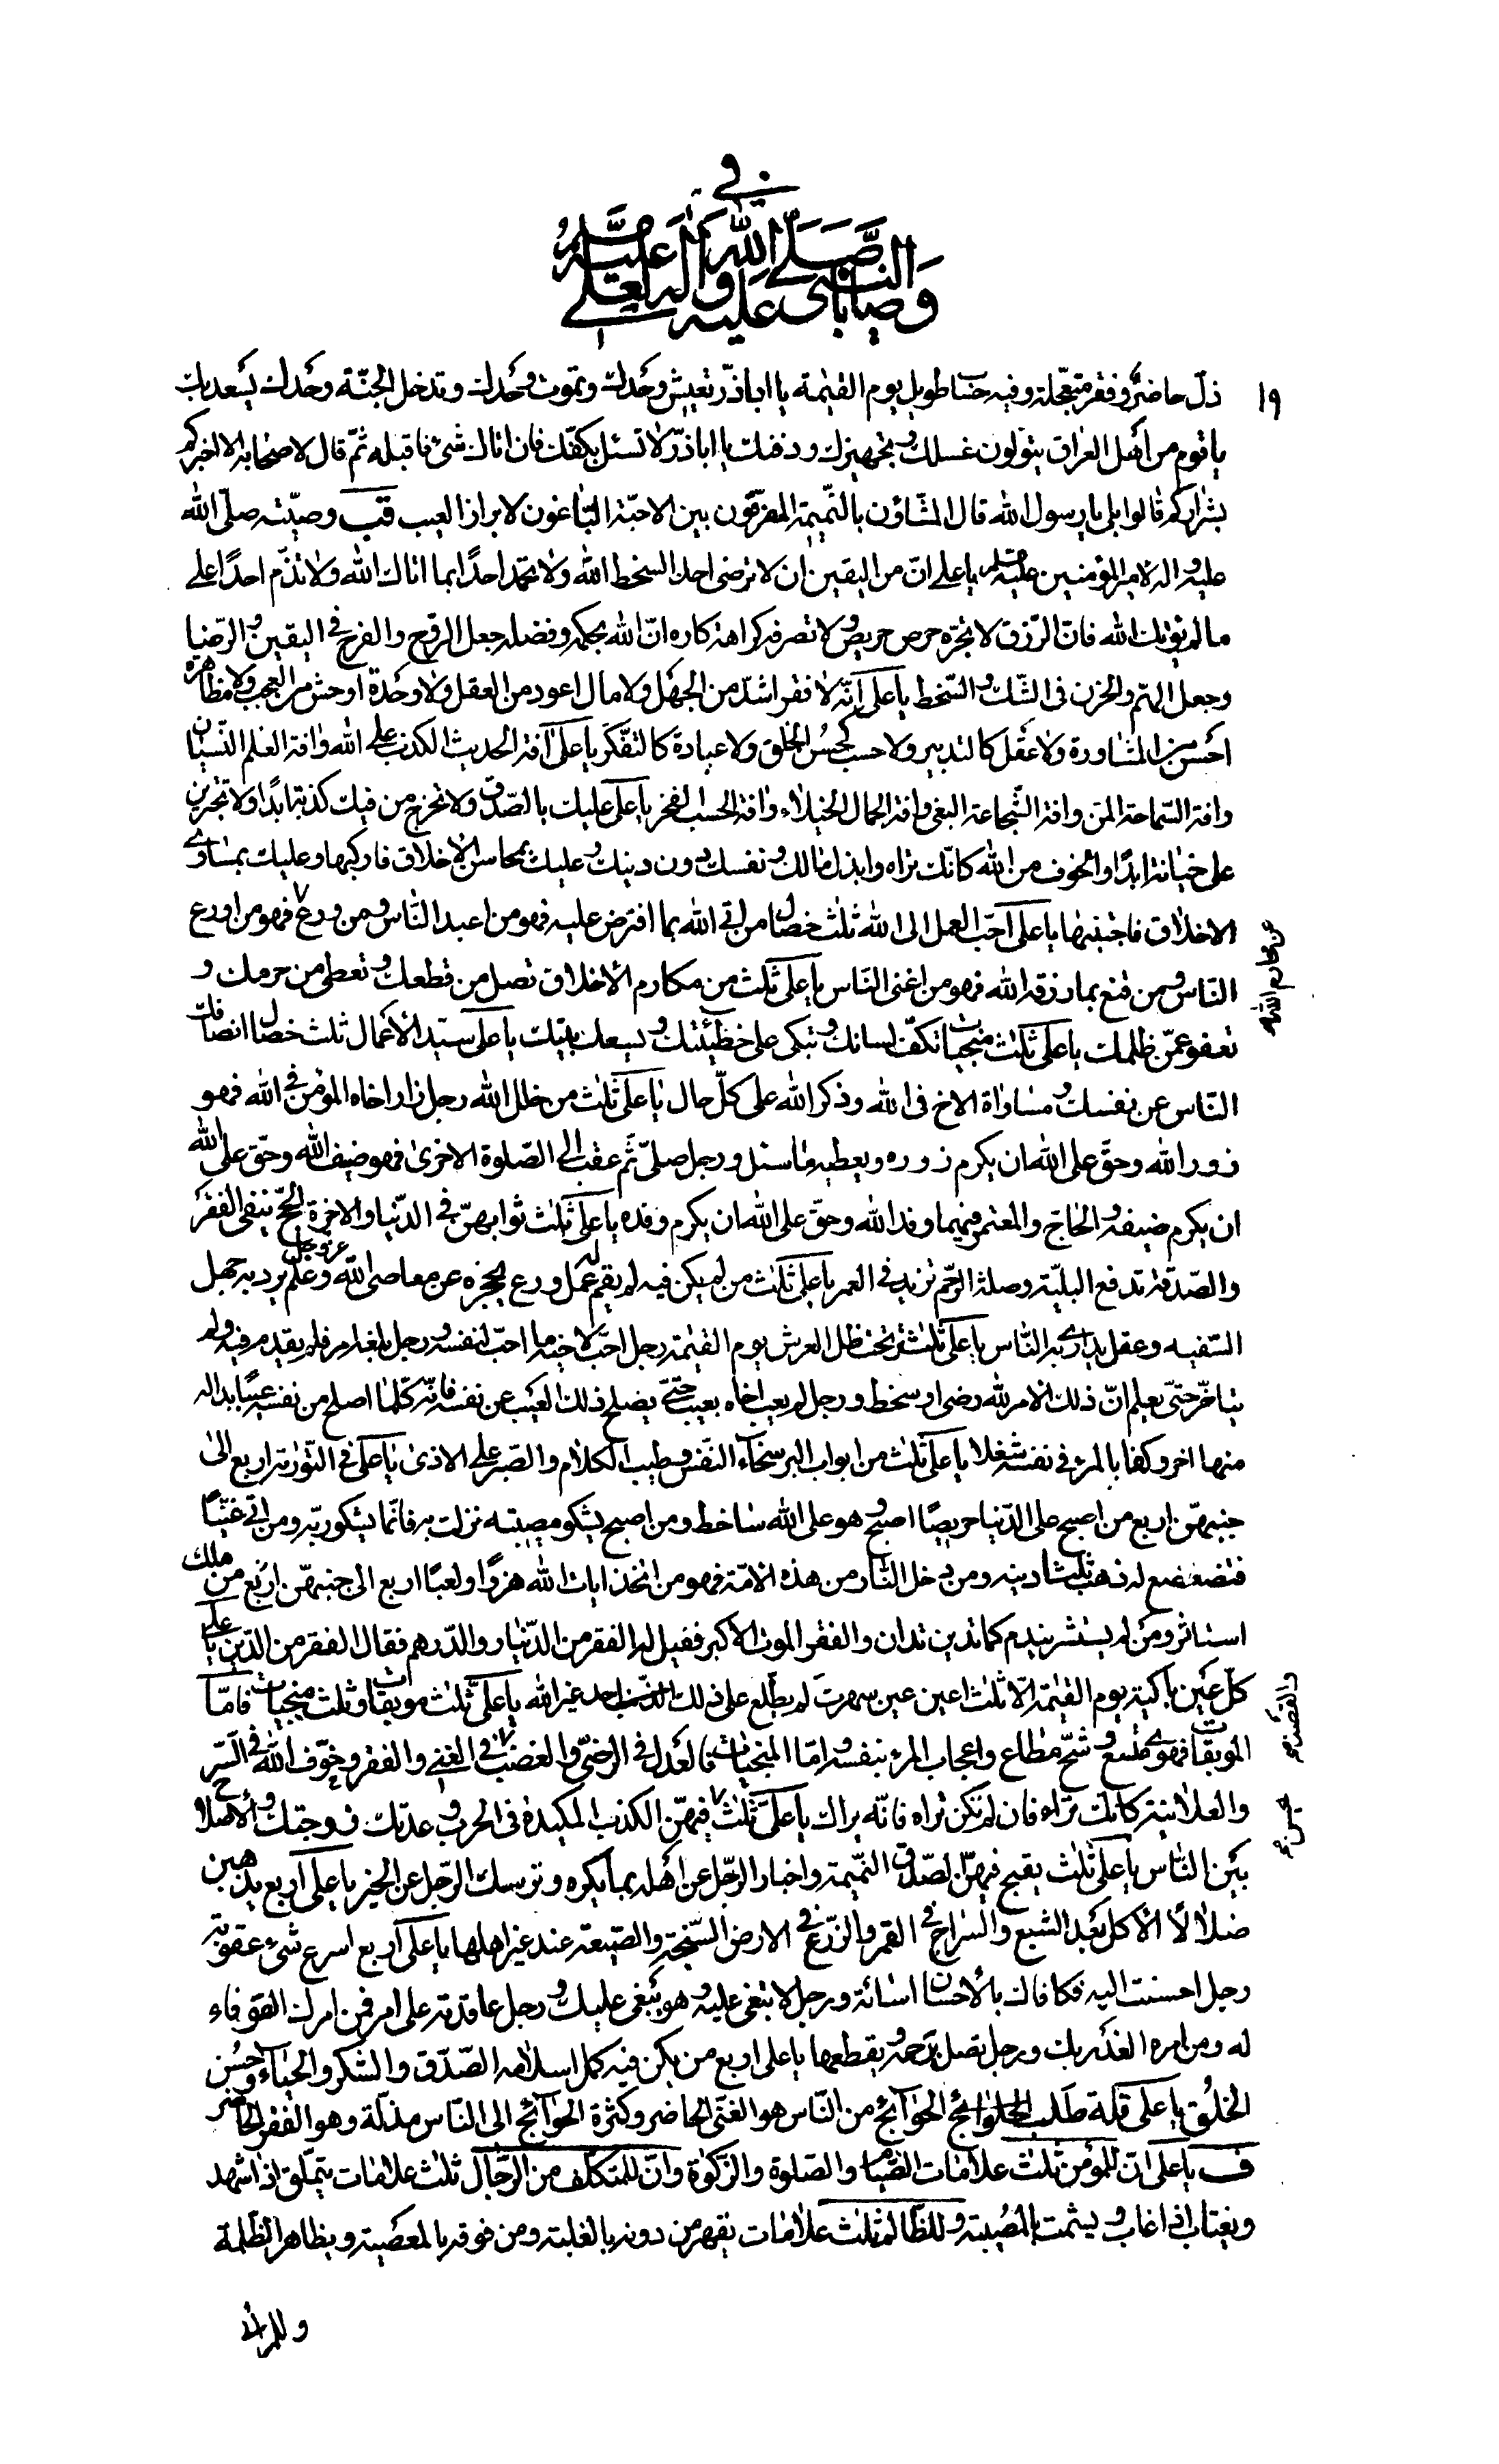 في
وصايا النبي صلى الله عليه وآله لعلي عليه السلم
١٩
ذلّ حاضر و فقر متعجّله وفيه حساب طويل يوم القيمة يا اباذرّ تعيش وحدك وتموت وحدك وتدخل الجنّة وحدك يسعد بك
ياقوم من اهل العراق يتولون غسلك و تجهيزك ودفنك يا اباذرّ لا تسئل بكفّك فان اتاك شئ فاقبله ثمّ قال لاصحابه الا اخبركم
بشراركم قالوا بلى يا رسول الله قال المشّاؤن بالنّميمة المفرّقون بين الاحبّة الباغون لابراز العيب قب وصيّته صلّى الله
عليه واله لامير المؤمنين عليه السلم يا علي انّ من اليقين ان لا ترضى احدا بسخط الله ولا تحمد احدًا بما اتاك الله ولا تذمّ احدًا على
ما لم يؤتك الله فانّ الرّزق لا يجرّه حرص حريص و لا تصرفه كراهة كاره انّ الله بحكمه وفضله جعل الروح والفرح في اليقين و الرّضا
وجعل الهمّ والحزن في الشّك و السّخط يا علي انّه لا فقر اشدّ من الجهل ولا مال اعود من العقل ولا وحدة اوحش من العجب ولا مظاهرة
احسن من المشاورة ولا عقل كالتدبير ولا حسب كحسن الخلق ولا عبادة كالتفكّر يا علي آفة الحديث الكذب على الله وافة العلم النّسيان
وافة السّماحة المن وافة الشّجاعة البغي وافة الجمال الخيلاء وافة الحسب الفخر يا علي عليك بالصّدق ولا تخرج من فيك كذبة ابدًا ولا تجترين
على خيانة ابدًا و الخوف من الله كانّك تراه وابذل مالك و نفسك دون دينك و عليك بمحاسن الاخلاق فاركبها وعليك بمساوي
الاخلاق فاجتنبها يا علي احبّ العمل الى الله ثلث خصال من اتى الله بما افترض عليه فهو من اعبد النّاس و من ورع فهو من اورع
عن محارم الله
النّاس و من قنع بما رزقه الله فهو من اغنى النّاس يا علي ثلث من مكارم الاخلاق تصل من قطعك و تعطى من حرمك و
تعفو عمّن ظلمك يا علي ثلث منجيات تكفّ لسانك و تبكى على خطيئتك و يسعك بيتك يا علي سيّد الاعمال ثلث خصال انصافك
النّاس عن نفسك و مساواة الاخ في الله وذكر الله على كلّ حال يا علي ثلث من خلل الله رجل زار اخاه المؤمن في الله فهو
زور الله وحقّ على الله ان يكرم زوره ويعطيه ما سئل ورجل صلّى ثمّ عقب الى الصّلوة الاخرى فهو ضيف الله وحقّ على الله
ان يكرم ضيفه و الحاجّ والمعتمر فهما وفد الله وحقّ على الله ان يكرم وفده يا علي ثلث ثوابهنّ في الدّنيا والاخرة الحجّ ينفى الفقر
والصّدقة تدفع البليّة وصلة الرّحم تزيد في العمر يا علي ثلث من لم يكن فيه لم يقم له عمل ورع يحجزه عن معاصى الله عزوجل وعلم يردّ به جهل
السّفيه وعقل يدارى به النّاس يا علي ثلثة تحت ظل العرش يوم القيمة رجل احبّ لاخيه ما احبّ لنفسه و رجل بلغه امر فلم يقدم فيه ولم
يتاخّر حتى يعلم انّ ذلك الامر لله رضى او سخط ورجل لم يعب اخاه بعيب حتى يصلح ذلك العيب عن نفسه فانّه كلّما اصلح من نفسه عيبًا بدا له
منها اخر وكفا بالمرء في نفسه شغلا يا علي ثلث من ابواب البر سخاء النّفس و طيب الكلام والصّبر على الاذى يا علي في التّوراة اربع الى
جنبهنّ اربع من اصبح على الدّنيا حريصًا اصبح و هو على الله ساخط ومن اصبح يشكو مصيبته نزلت به فانّما يشكو ربّه ومن اتى غنيّا
فتضعضع له ذهب ثلثا دينه ومن دخل النّار من هذه الامّة فهو من اتّخذ ايات الله هزوًا ولعبًا اربع الى جنبهنّ اربع من ملك
استاثر ومن لم يستشر يندم كما تدين تدان والفقر الموت الاكبر فقيل له الفقر من الدّينار والدّرهم فقال الفقر من الدّين يا علي
كلّ عين باكية يوم القيمة الّا ثلث اعين عين سهرت لم يطّلع على ذلك الذنب احد غير الله يا علي ثلث موبقات و ثلث منجيات فامّا
الموبقات فهوى متّبع و شحّ مطاع واعجاب المرء بنفسه و امّا المنجيات فالعدل في الرضى و الغضب و القصد في الغنى والفقر وخوف الله في السّر
والقصد
والعلانية كانّك تراه فان لم تكن تراه فانّه يراك يا علي ثلث فيهنّ الكذب المكيدة في الحرب و عدتك زوجتك و الاصلاح
يحسن
بين النّاس يا علي ثلث يقبح فيهنّ الصّدق النّميمة واخبار الرّجل عن اهله بما يكره وتوسك الرّجل عن الخير يا علي اربع يذهبن
ضلالًا الاكل بعد الشبع والسّراج في القمر والزّرع في الارض السّبخة والصّنيعة عند غير اهلها يا علي اربع اسرع شئ عقوبة
رجل احسنت اليه فكافاك بالاحسان اسائة ورجل لا تبغى عليه و هو يبغى عليك و رجل عاقدته على امر فمن امرك الوفاء
له ومن امره الغدر بك ورجل تصل رحمه و يقطعها يا علي اربع من يكن فيه كمل اسلامه الصّدق والشكر والحياء وحسن
الخلق يا علي قلّة طلب الحوائج من النّاس هو الغنى الحاضر وكثرة الحوائج الى النّاس مذلّة وهو الفقر الحاضر
ف يا علي انّ للمؤمن ثلث علامات الصّيام والصّلوة والزّكوة وانّ للمتكلّف من الرّجال ثلث علامات يتملّق اذا شهد
ويغتاب اذا غاب و يشمت بالمصيبة و للظّالم ثلث علامات يقهر من دونه بالغلبة ومن فوقه بالمعصية ويظاهر الظّلمة
و للمرائي